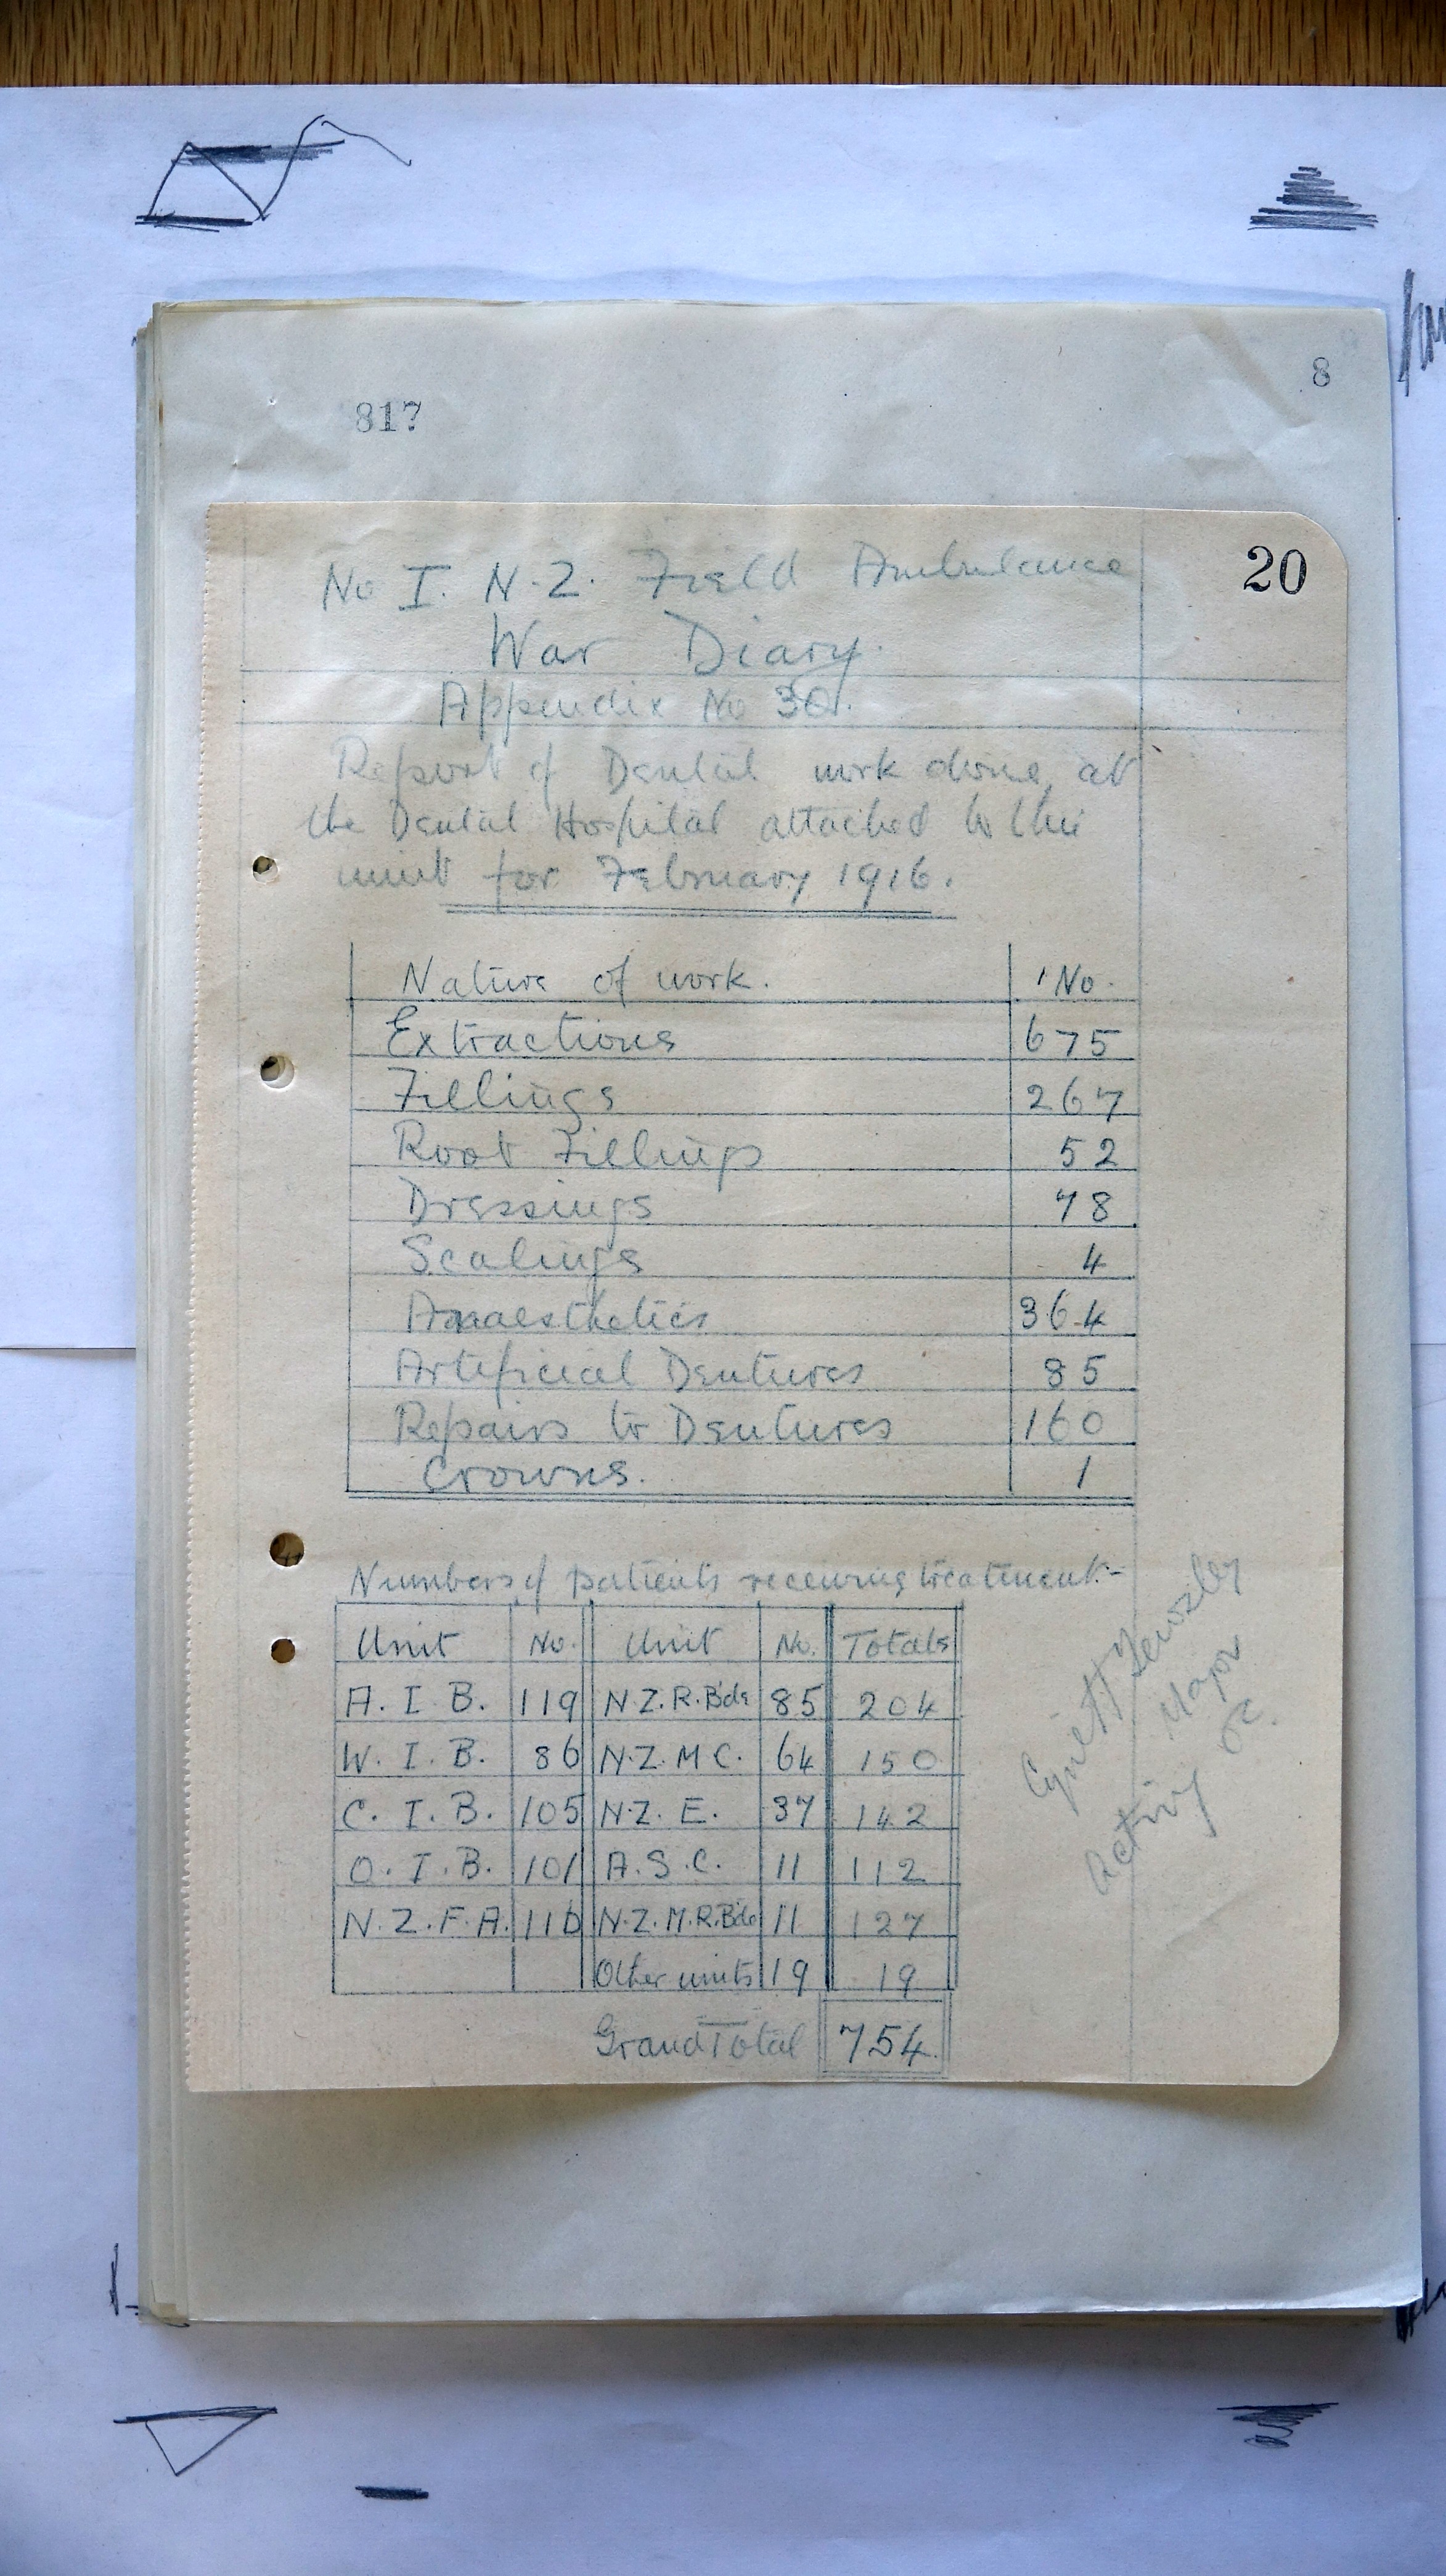 8
817
20
No I. N.Z. Field Ambulance
War Diary.
Appendix No 30.
Report of Dental work done at
the Dental Hospital attached to this
unit for February 1916.
Nature of work. No.
Extractions 675
Fillings 267
Root Fillings 52
Dressings 78
Scalings 4
Anaesthetics 364
Artificial Dentures 85
Repairs to Dentures 160
Crowns. 1
Numbers of patients receiving treatment:-
Unit No. Unit No. Totals
A. I. B. 119 N.Z.R.Bde 85 204
W. I. B. 86 N.Z.M.C. 64 150
C. I. B. 105 N.Z.E. 37 142
O. I. B. 101 A.S.C. 11 112
N.Z.F.A. 116 N.Z.M.R.Bde 11 127
Other units 19 19
Grand Total 754
Major
Acting OC.